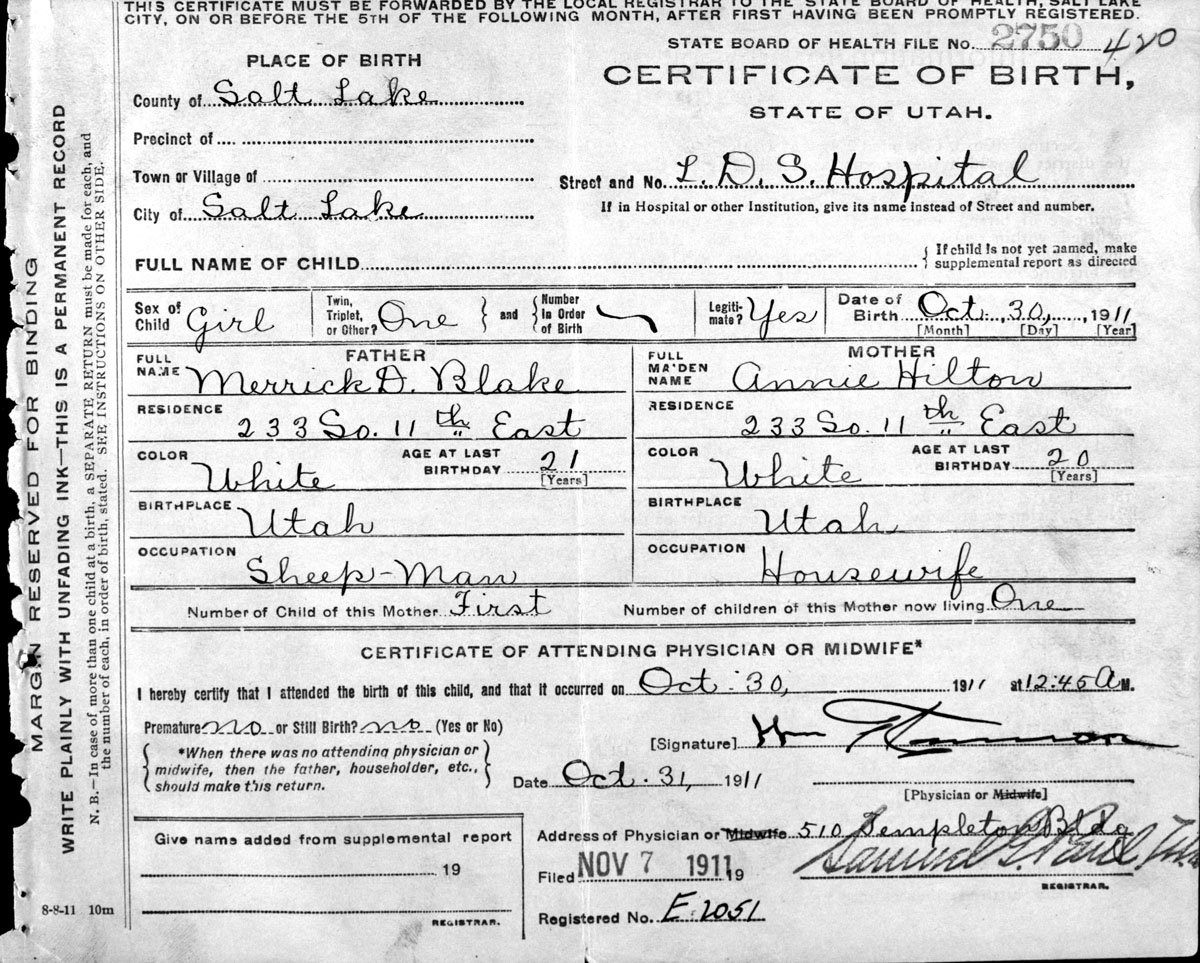 THIS CERTIFICATE MUST BE FORWARDED BY THE LOCAL REGISTRAR TO THE STATE BOARD OF HEALTH, SALT LAKE
CITY, ON OR BEFORE THE 5TH OF THE FOLLOWING MONTH, AFTER FIRST HAVING BEEN PROMPTLY REGISTERED.
STATE BOARD OF HEALTH FILE No. 2750 420
PLACE OF BIRTH
CERTIFICATE OF BIRTH,
STATE OF UTAH.
County of Salt Lake
Precinct of
Town or Village of
Street and No. L. D. S. Hospital
City of Salt Lake
If in Hospital or other Institution, give its name instead of Street and number.
FULL NAME OF CHILD
If child is not yet named, make
supplemental report as directed
Sex of Child Girl
Twin, Triplet, or Other? One
and
Number In Order of Birth
Legiti-mate? Yes
Date of Birth Oct. 30, 1911
[Month] [Day] [Year]
FATHER
FULL NAME Merrick D. Blake
RESIDENCE
233 So. 11th East
COLOR White
AGE AT LAST BIRTHDAY 21
[Years]
BIRTHPLACE Utah
OCCUPATION
Sheep-Man
MOTHER
FULL MAIDEN NAME Annie Hilton
RESIDENCE
233 So. 11th East
COLOR White
AGE AT LAST BIRTHDAY 20
[Years]
BIRTHPLACE Utah
OCCUPATION
Housewife
Number of Child of this Mother First
Number of children of this Mother now living One
CERTIFICATE OF ATTENDING PHYSICIAN OR MIDWIFE*
I hereby certify that I attended the birth of this child, and that it occurred on Oct. 30, 1911 at 12:45 A M.
Premature no or Still Birth? no (Yes or No)
*When there was no attending physician or
midwife, then the father, householder, etc.,
should make this return.
[Signature]
Date Oct. 31, 1911
[Physician or Midwife]
Give name added from supplemental report
19
REGISTRAR.
8-8-11 10m
Address of Physician or Midwife 510 Templeton Bldg
Filed NOV 7 1911 19
Samuel G. Paul
REGISTRAR.
Registered No. E 2051
MARGIN RESERVED FOR BINDING
WRITE PLAINLY WITH UNFADING INK—THIS IS A PERMANENT RECORD
N. B.—In case of more than one child at a birth, a SEPARATE RETURN must be made for each, and
the number of each, in order of birth, stated. SEE INSTRUCTIONS ON OTHER SIDE.